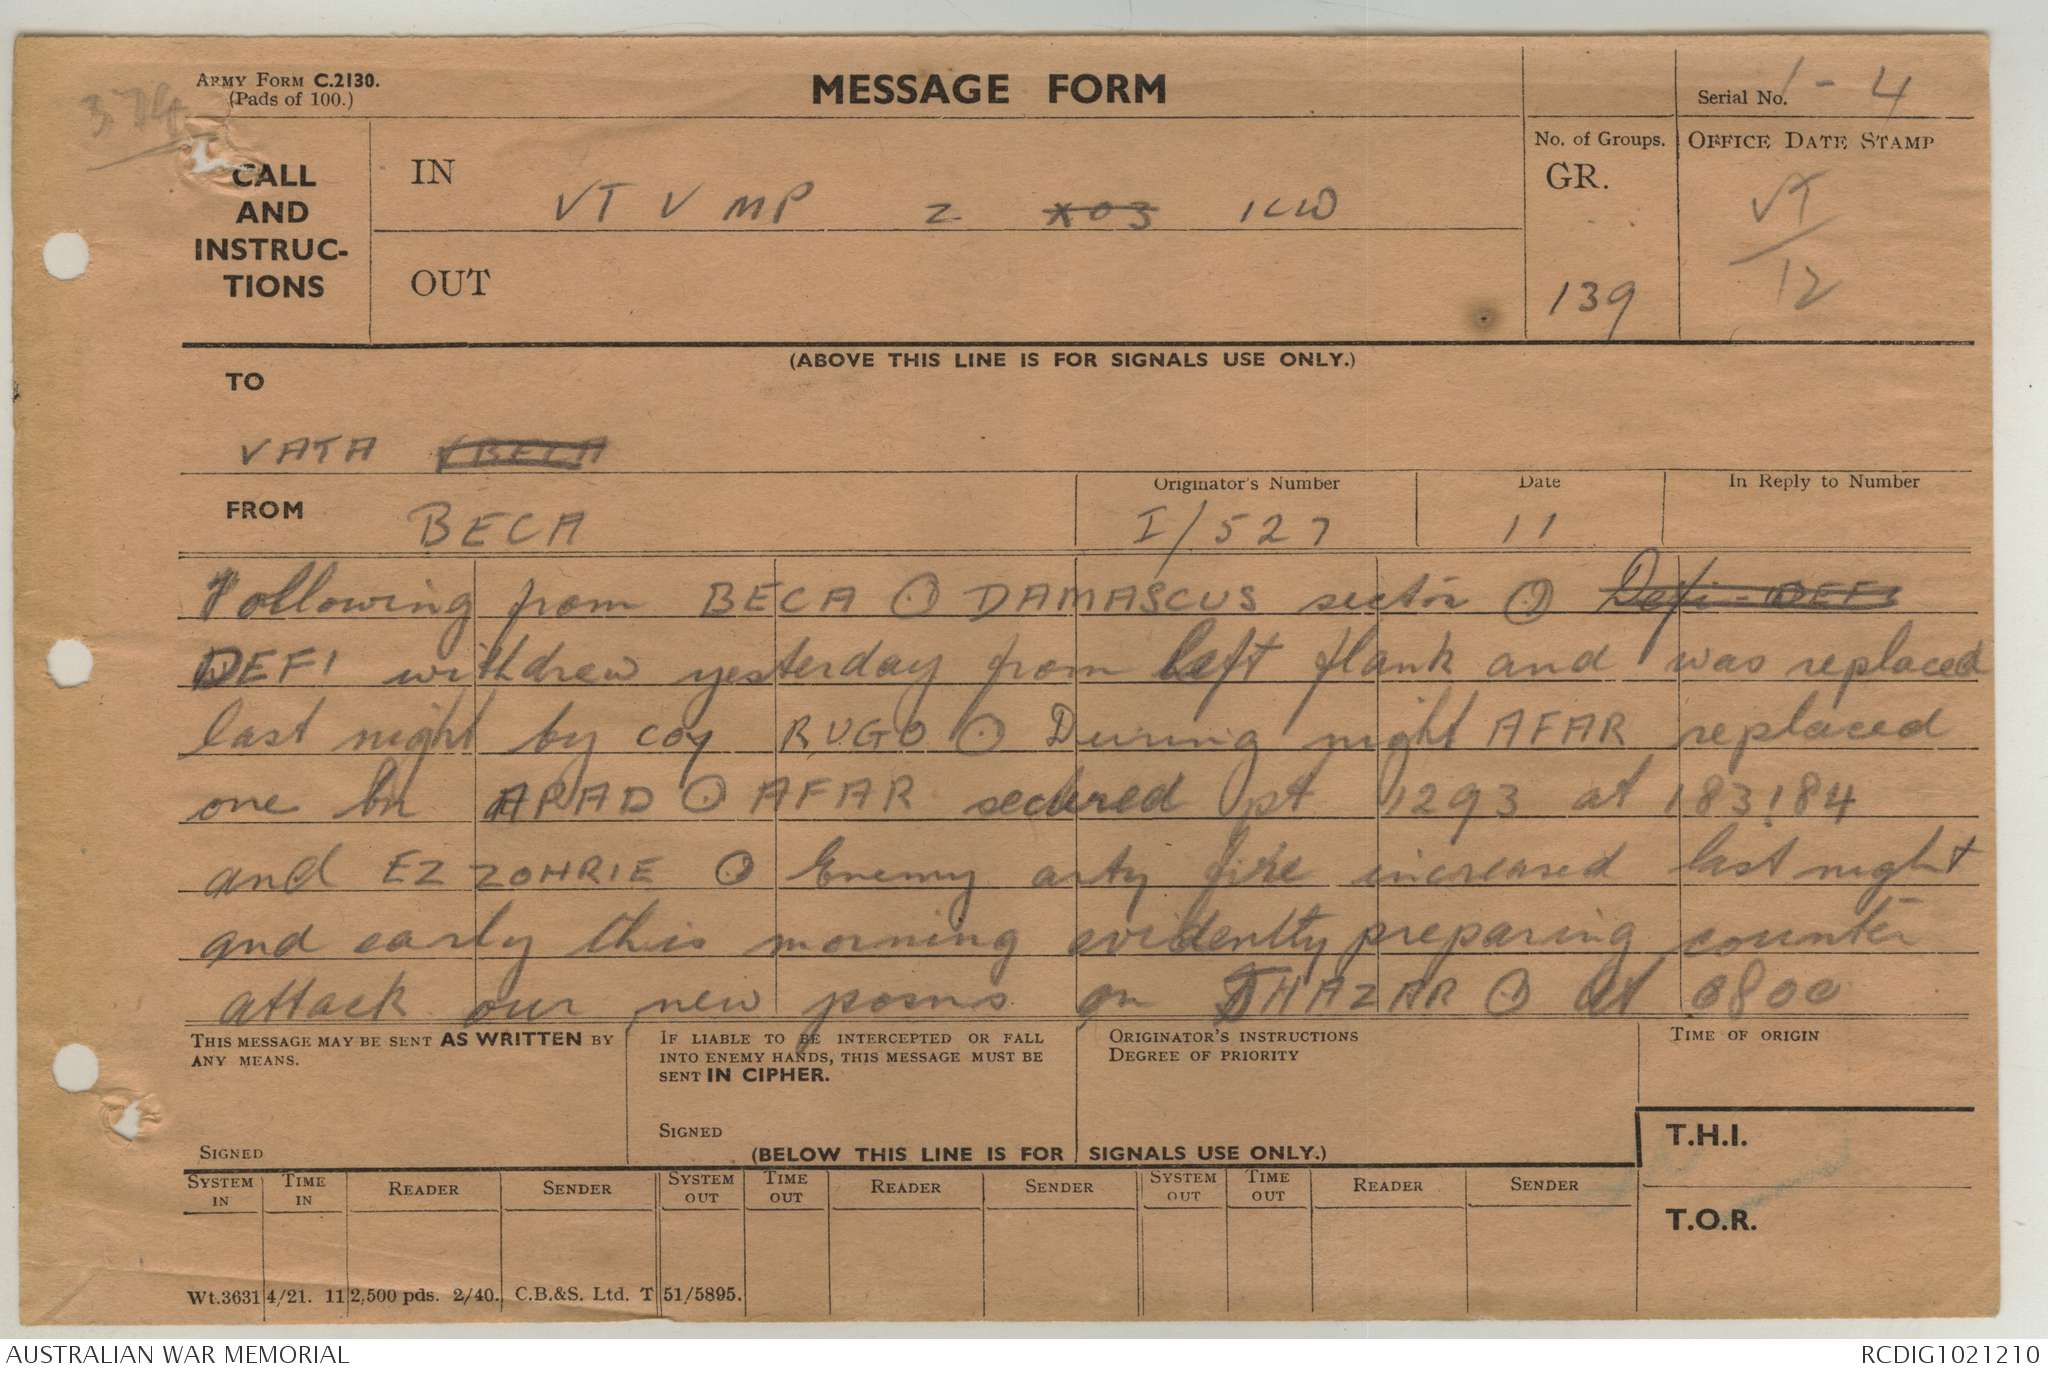 ARMY FORM C.2130.
(Pads of 100.)
374
MESSAGE FORM
Serial No. 1 - 4
CALL
AND
INSTRUC-
TIONS
IN
VT V MP Z XOS
OUT
No. of Groups.
GR.
139
OFFICE DATE STAMP
VT
12
(ABOVE THIS LINE IS FOR SIGNALS USE ONLY.)
TO
VATA VBECA
FROM BECA
Originator's Number
I/527
Date
11
In Reply to Number
Following from BECA ⊙ DAMASCUS sector ⊙ Defi - DEFI
DEFI withdrew yesterday from left flank and was replaced
last night by coy RUGO ⊙ During night AFAR replaced
one bn APAD ⊙ AFAR secured pt 1293 at 183184
and EZ ZOHRIE ⊙ Enemy arty fire increased last night
and early this morning evidently preparing counter
attack our new posns on HAZAR ⊙ at 0800
THIS MESSAGE MAY BE SENT AS WRITTEN BY
ANY MEANS.
SIGNED
IF LIABLE TO BE INTERCEPTED OR FALL
INTO ENEMY HANDS, THIS MESSAGE MUST BE
SENT IN CIPHER.
SIGNED
ORIGINATOR'S INSTRUCTIONS
DEGREE OF PRIORITY
TIME OF ORIGIN
(BELOW THIS LINE IS FOR SIGNALS USE ONLY.)
T.H.I.
T.O.R.
SYSTEM IN TIME IN READER SENDER SYSTEM OUT TIME OUT READER SENDER SYSTEM OUT TIME OUT READER SENDER
Wt.3631 4/21. 11 2,500 pds. 2/40. C.B.&S. Ltd. T 51/5895.
AUSTRALIAN WAR MEMORIAL
RCDIG1021210